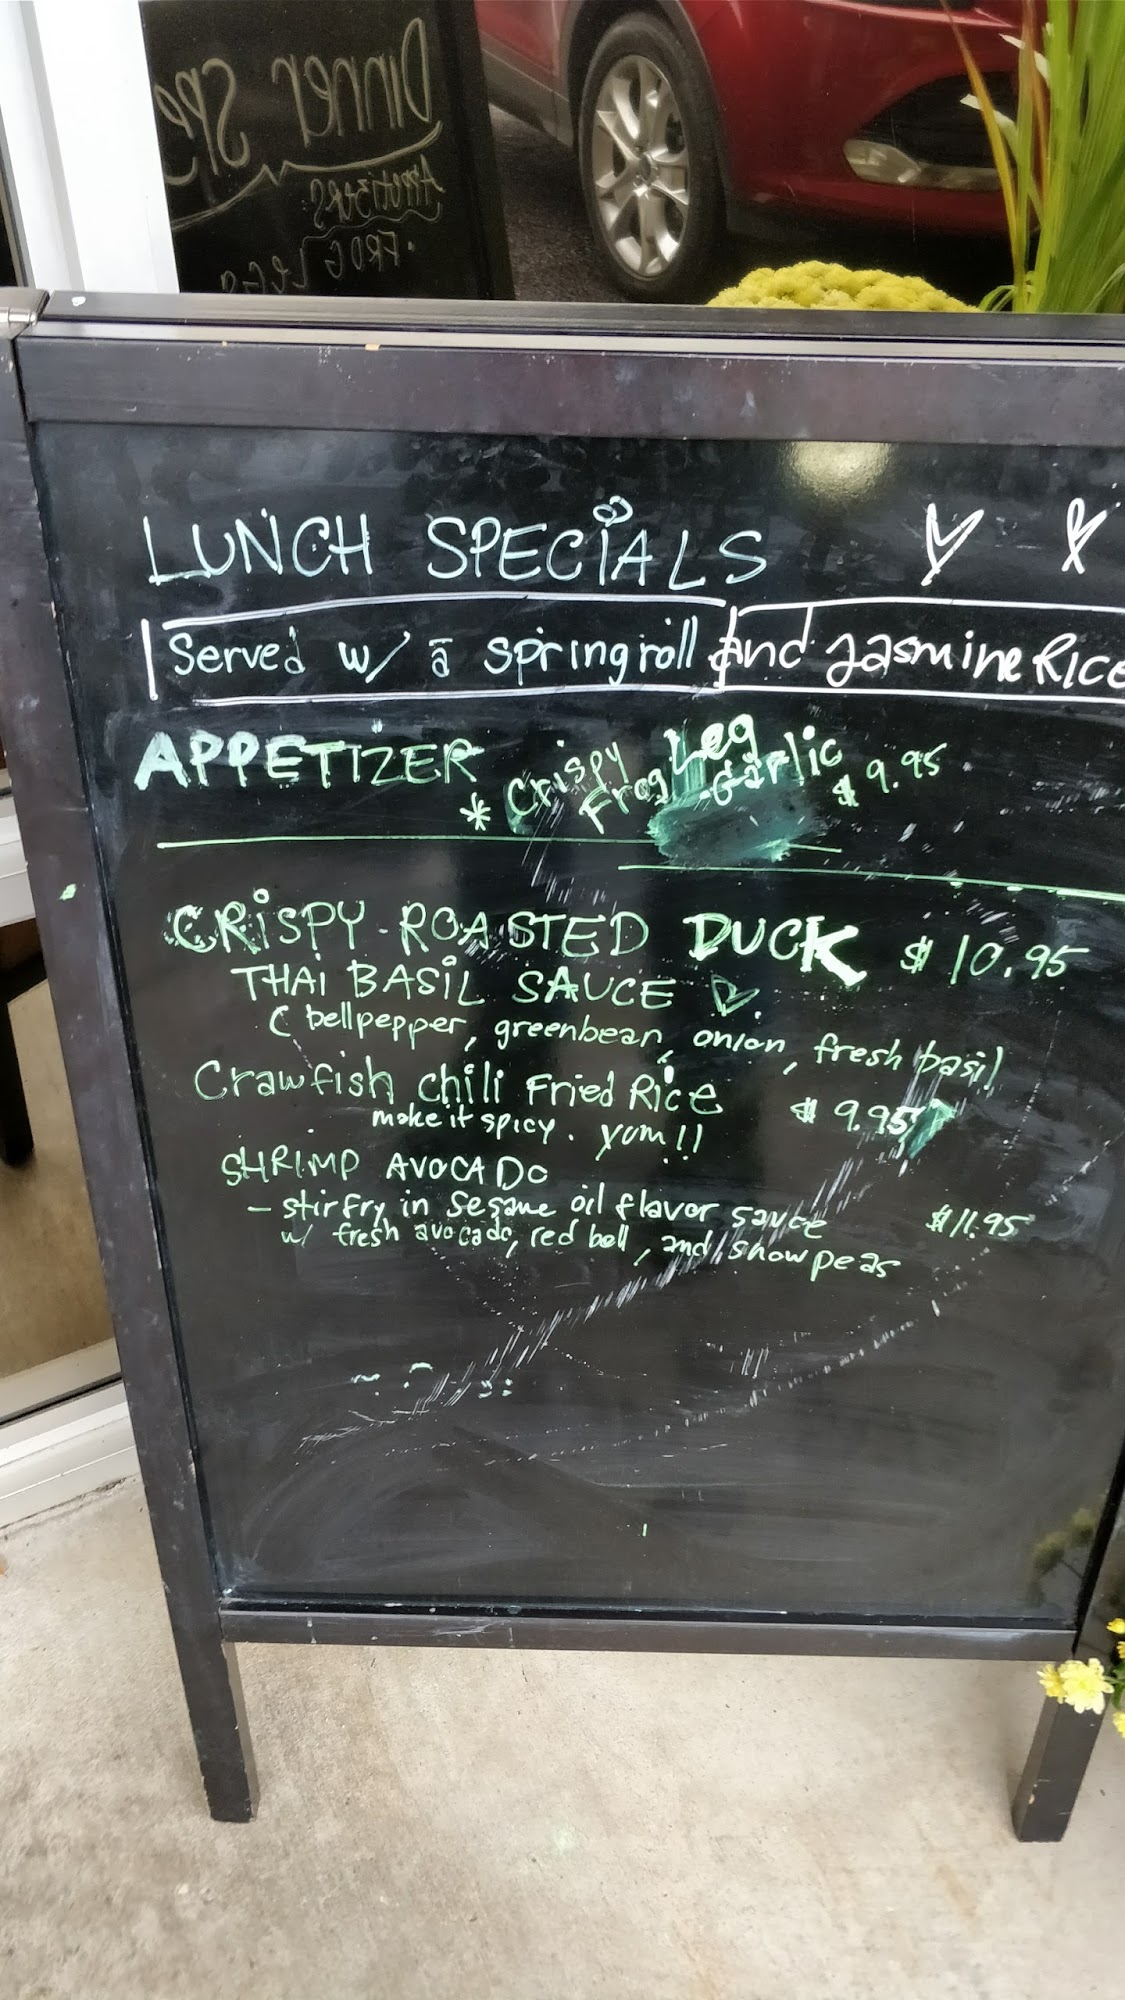 Dinner Spe
Appetizers
• FROG LEGS
LUNCH SPECiALS
Served w/ a springroll and Jasmine Rice
APPETiZER
* Crispy Frog Leg Garlic $ 9.95
CRiSPY ROASTED DUCK $ 10.95
THAI BASiL SAUCE
( bellpepper, greenbean, onion, fresh basil
Crawfish Chili Fried Rice $ 9.95
make it spicy. yum!!
SHRIMP AVOCADO
- stirfry in Sesame oil flavor sauce $11.95
w/ fresh avocado, red bell, and snowpeas